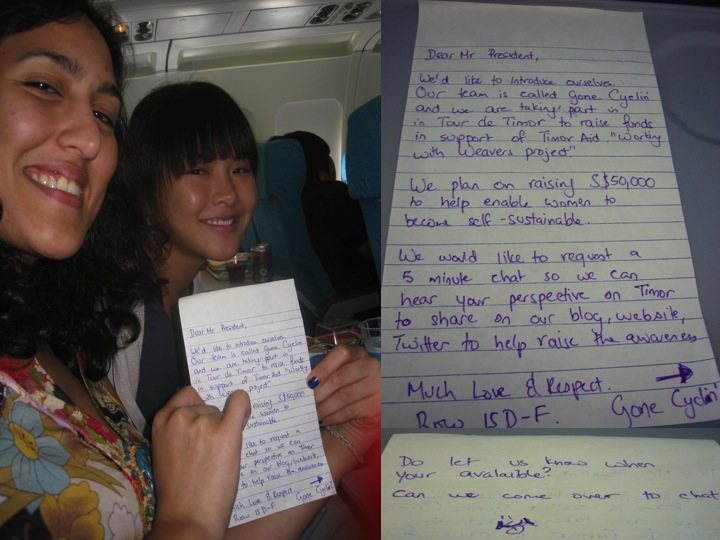 Dear Mr President,
We'd like to introduce ourselves.
Our team is called Gone Cyclin'
and we are taking part in
in Tour de Timor to raise funds
in support of Timor Aid "Working
with Weavers project"
We plan on raising S$50,000
to help enable women to
become self-sustainable.
We would like to request a
5 minute chat so we can
hear your perspective on Timor
to share on our blog, website,
Twitter to help raise the awareness
Much Love & Respect.
Row 15D-F.
Gone Cyclin'
Do let us know when
your avalaible?
Can we come over to chat
Dear Mr President,
We'd like to introduce ourselves
Our team is called Gone Cyclin'
and we are taking part in
in Tour de Timor to raise funds
in support of Timor Aid "Working
with Weavers project"
raising S$50,000
women to
sustainable.
like to request a
chat so we can
perspective on Timor
on our blog, website,
to help raise the awareness
Love & Respect
Row 15D-F.
Gone Cyclin'